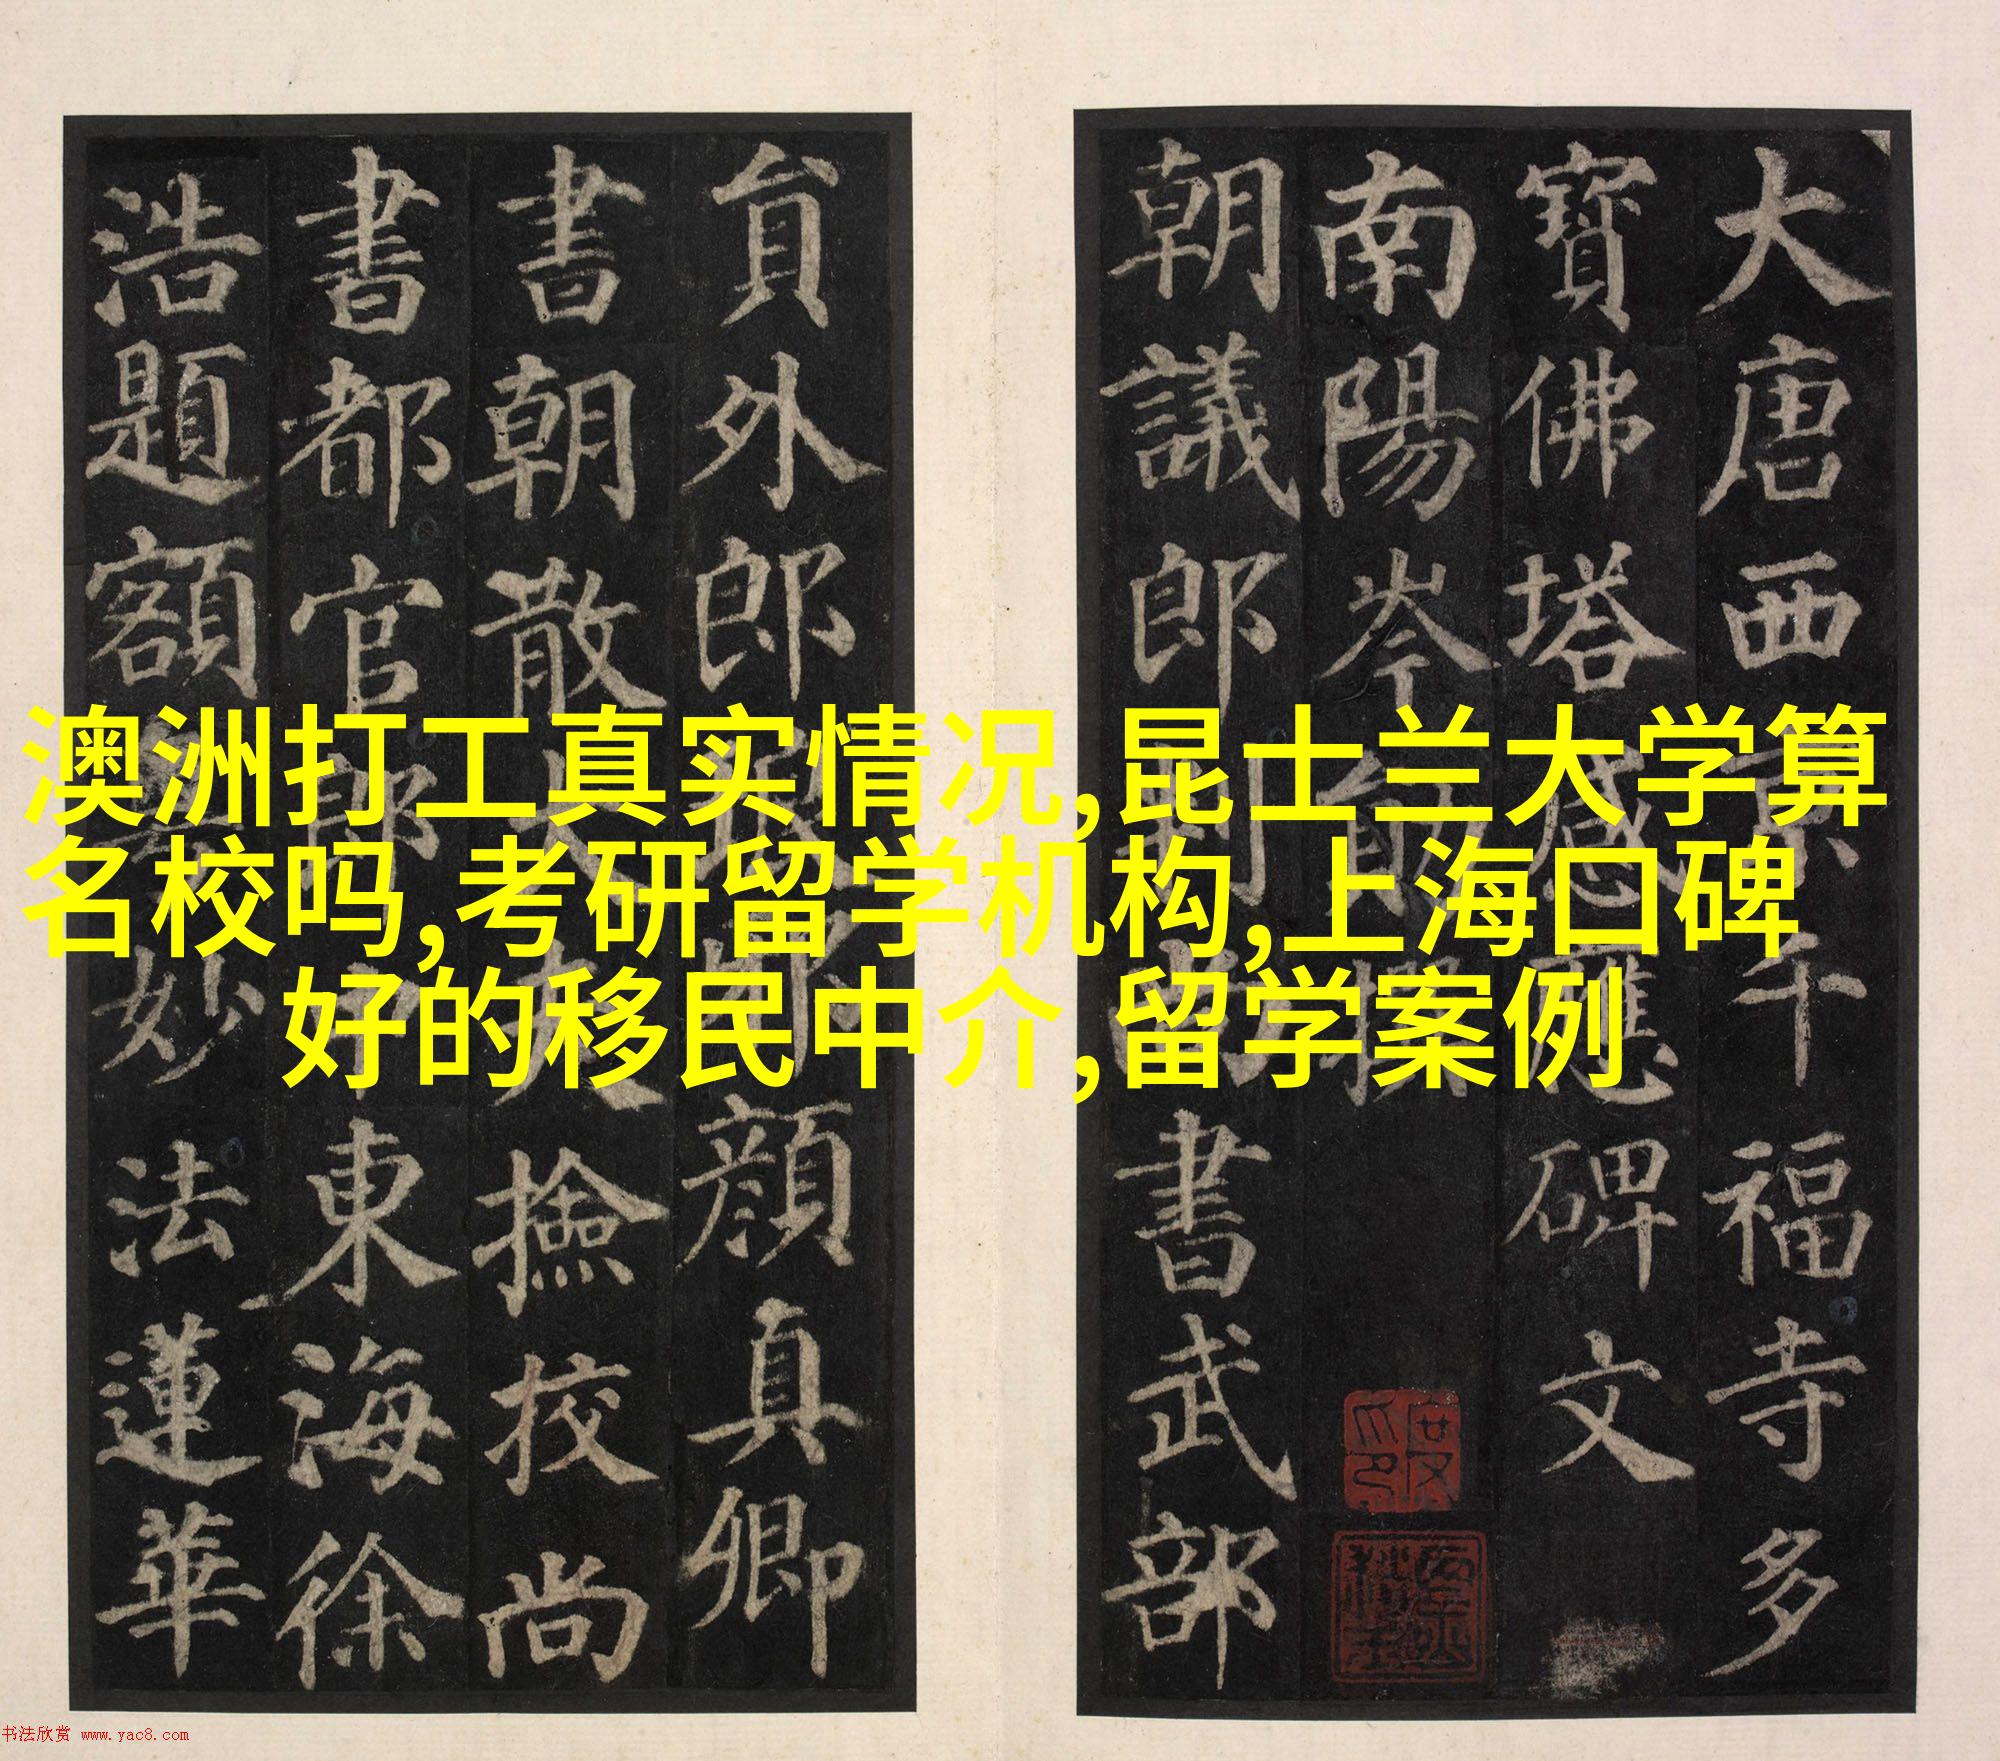 澳洲打工真实情况,昆士兰大学算
名校吗,考研留学机构,上海口碑
好的移民中介,留学案例
大唐西京千福寺多
寶佛塔感應碑文
南陽岑勛撰
朝議郎判尚書武部
貟外郎
顔真卿
書朝散大夫撿挍尚
書都官郎中東海徐
浩題額
妙法蓮華
书法欣赏 www.yac8.com